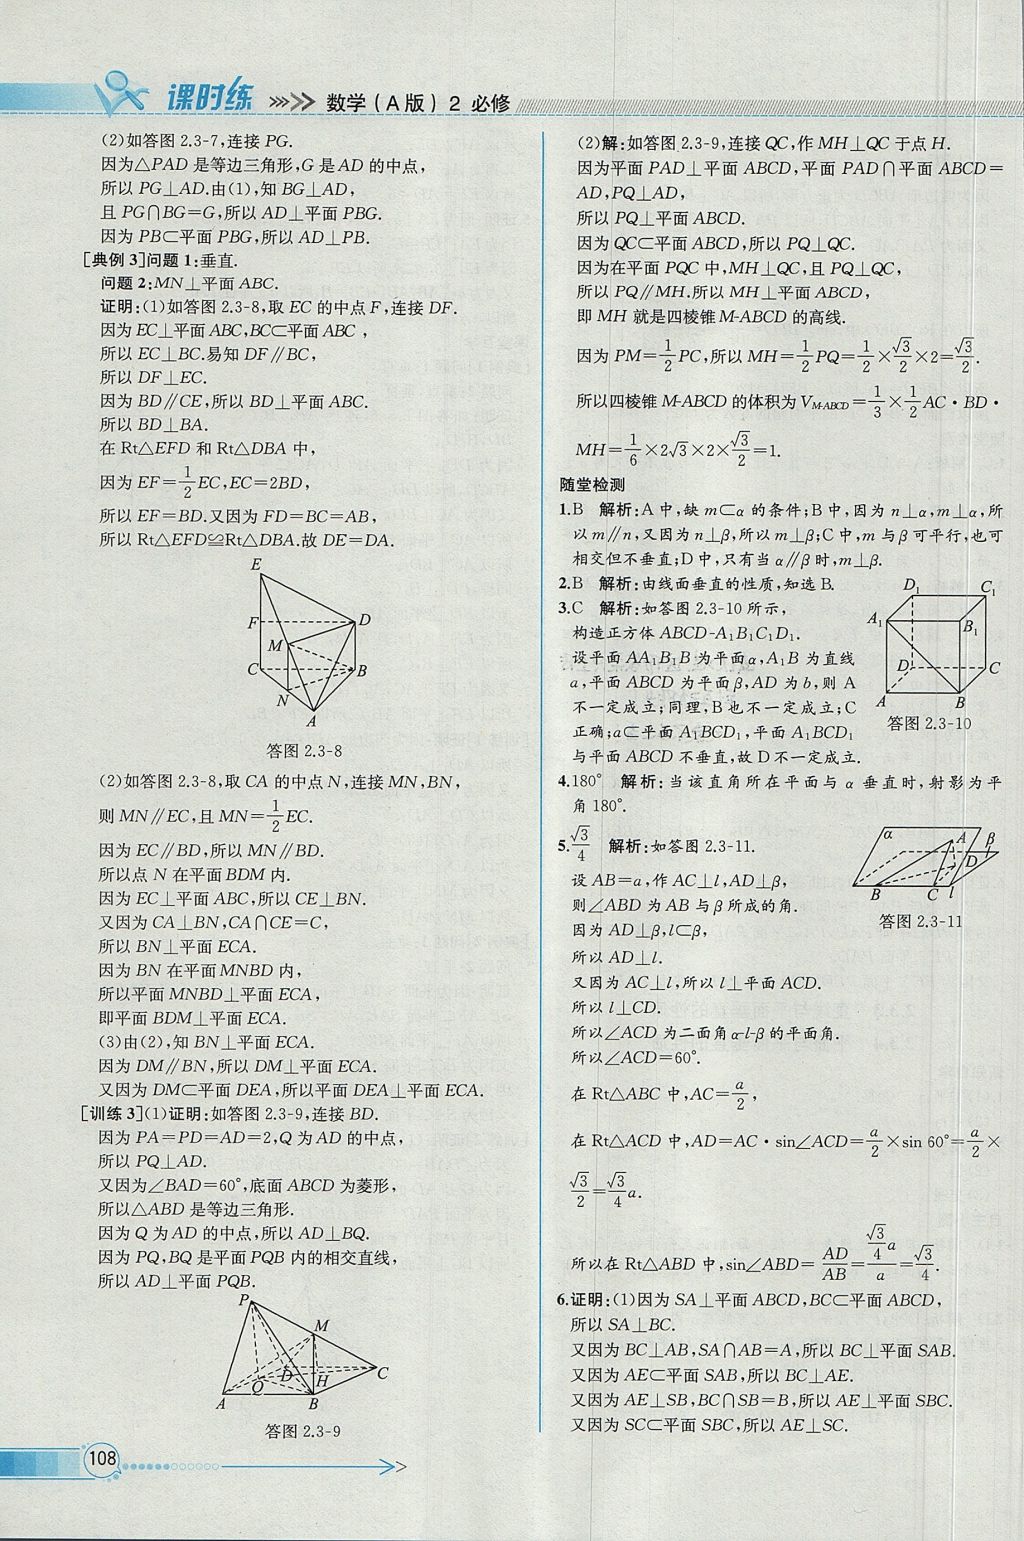 课时练 数学(A版) 2 必修
(2)如答图 2.3-7,连接 PG.
因为△PAD 是等边三角形,G 是 AD 的中点,
所以 PG⊥AD.由(1),知 BG⊥AD,
且 PG∩BG=G,所以 AD⊥平面 PBG.
因为 PB⊂平面 PBG,所以 AD⊥PB.
[典例 3]问题 1:垂直.
问题 2:MN⊥平面 ABC.
证明:(1)如答图 2.3-8,取 EC 的中点 F,连接 DF.
因为 EC⊥平面 ABC,BC⊂平面 ABC,
所以 EC⊥BC.易知 DF∥BC,
所以 DF⊥EC.
因为 BD∥CE,所以 BD⊥平面 ABC.
所以 BD⊥BA.
在 Rt△EFD 和 Rt△DBA 中,
因为 EF=1/2EC,EC=2BD,
所以 EF=BD.又因为 FD=BC=AB,
所以 Rt△EFD≌Rt△DBA.故 DE=DA.
E
F D
M
C B
N
A
答图 2.3-8
(2)如答图 2.3-8,取 CA 的中点 N,连接 MN,BN,
则 MN∥EC,且 MN=1/2EC.
因为 EC∥BD,所以 MN∥BD.
所以点 N 在平面 BDM 内.
因为 EC⊥平面 ABC,所以 CE⊥BN.
又因为 CA⊥BN,CA∩CE=C,
所以 BN⊥平面 ECA.
因为 BN 在平面 MNBD 内,
所以平面 MNBD⊥平面 ECA,
即平面 BDM⊥平面 ECA.
(3)由(2),知 BN⊥平面 ECA.
因为 DM∥BN,所以 DM⊥平面 ECA.
又因为 DM⊂平面 DEA,所以平面 DEA⊥平面 ECA.
[训练 3](1)证明:如答图 2.3-9,连接 BD.
因为 PA=PD=AD=2,Q 为 AD 的中点,
所以 PQ⊥AD.
又因为∠BAD=60°,底面 ABCD 为菱形,
所以△ABD 是等边三角形.
因为 Q 为 AD 的中点,所以 AD⊥BQ.
因为 PQ,BQ 是平面 PQB 内的相交直线,
所以 AD⊥平面 PQB.
P
M
D C
Q H
A B
答图 2.3-9
108
(2)解:如答图 2.3-9,连接 QC,作 MH⊥QC 于点 H.
因为平面 PAD⊥平面 ABCD,平面 PAD∩平面 ABCD=
AD,PQ⊥AD,
所以 PQ⊥平面 ABCD.
因为 QC⊂平面 ABCD,所以 PQ⊥QC.
因为在平面 PQC 中,MH⊥QC,且 PQ⊥QC,
所以 PQ∥MH.所以 MH⊥平面 ABCD,
即 MH 就是四棱锥 M-ABCD 的高线.
因为 PM=1/2PC,所以 MH=1/2PQ=1/2×√3/2×2=√3/2.
所以四棱锥 M-ABCD 的体积为 V_{M-ABCD}=1/3×1/2AC·BD·
MH=1/6×2√3×2×√3/2=1.
随堂检测
1.B 解析:A 中,缺 m⊂α 的条件;B 中,因为 n⊥α,m⊥α,所
以 m∥n,又因为 n⊥β,所以 m⊥β;C 中,m 与 β 可平行,也可
相交但不垂直;D 中,只有当 α∥β 时,m⊥β.
2.B 解析:由线面垂直的性质,知选 B.
3.C 解析:如答图 2.3-10 所示,
构造正方体 ABCD-A₁B₁C₁D₁.
设平面 AA₁B₁B 为平面 α,A₁B 为直线
a,平面 ABCD 为平面 β,AD 为 b,则 A
不一定成立;同理,B 也不一定成立;C
正确;a⊂平面 A₁BCD₁,平面 A₁BCD₁
与平面 ABCD 不垂直,故 D 不一定成立.
D₁ C₁
A₁ B₁
D C
A B
答图 2.3-10
4.180° 解析:当该直角所在平面与 α 垂直时,射影为平
角 180°.
5.√3/4 解析:如答图 2.3-11.
设 AB=a,作 AC⊥l,AD⊥β,
则∠ABD 为 AB 与 β 所成的角.
因为 AD⊥β,l⊂β,
所以 AD⊥l.
又因为 AC⊥l,所以 l⊥平面 ACD.
所以 l⊥CD.
所以∠ACD 为二面角 α-l-β 的平面角.
所以∠ACD=60°.
α A β
D
B C l
答图 2.3-11
在 Rt△ABC 中,AC=a/2,
在 Rt△ACD 中,AD=AC·sin∠ACD=a/2×sin 60°=a/2×
√3/2=√3/4 a.
所以在 Rt△ABD 中,sin∠ABD=AD/AB=(√3/4 a)/a=√3/4.
6.证明:(1)因为 SA⊥平面 ABCD,BC⊂平面 ABCD,
所以 SA⊥BC.
又因为 BC⊥AB,SA∩AB=A,所以 BC⊥平面 SAB.
又因为 AE⊂平面 SAB,所以 BC⊥AE.
又因为 AE⊥SB,BC∩SB=B,所以 AE⊥平面 SBC.
又因为 SC⊂平面 SBC,所以 AE⊥SC.